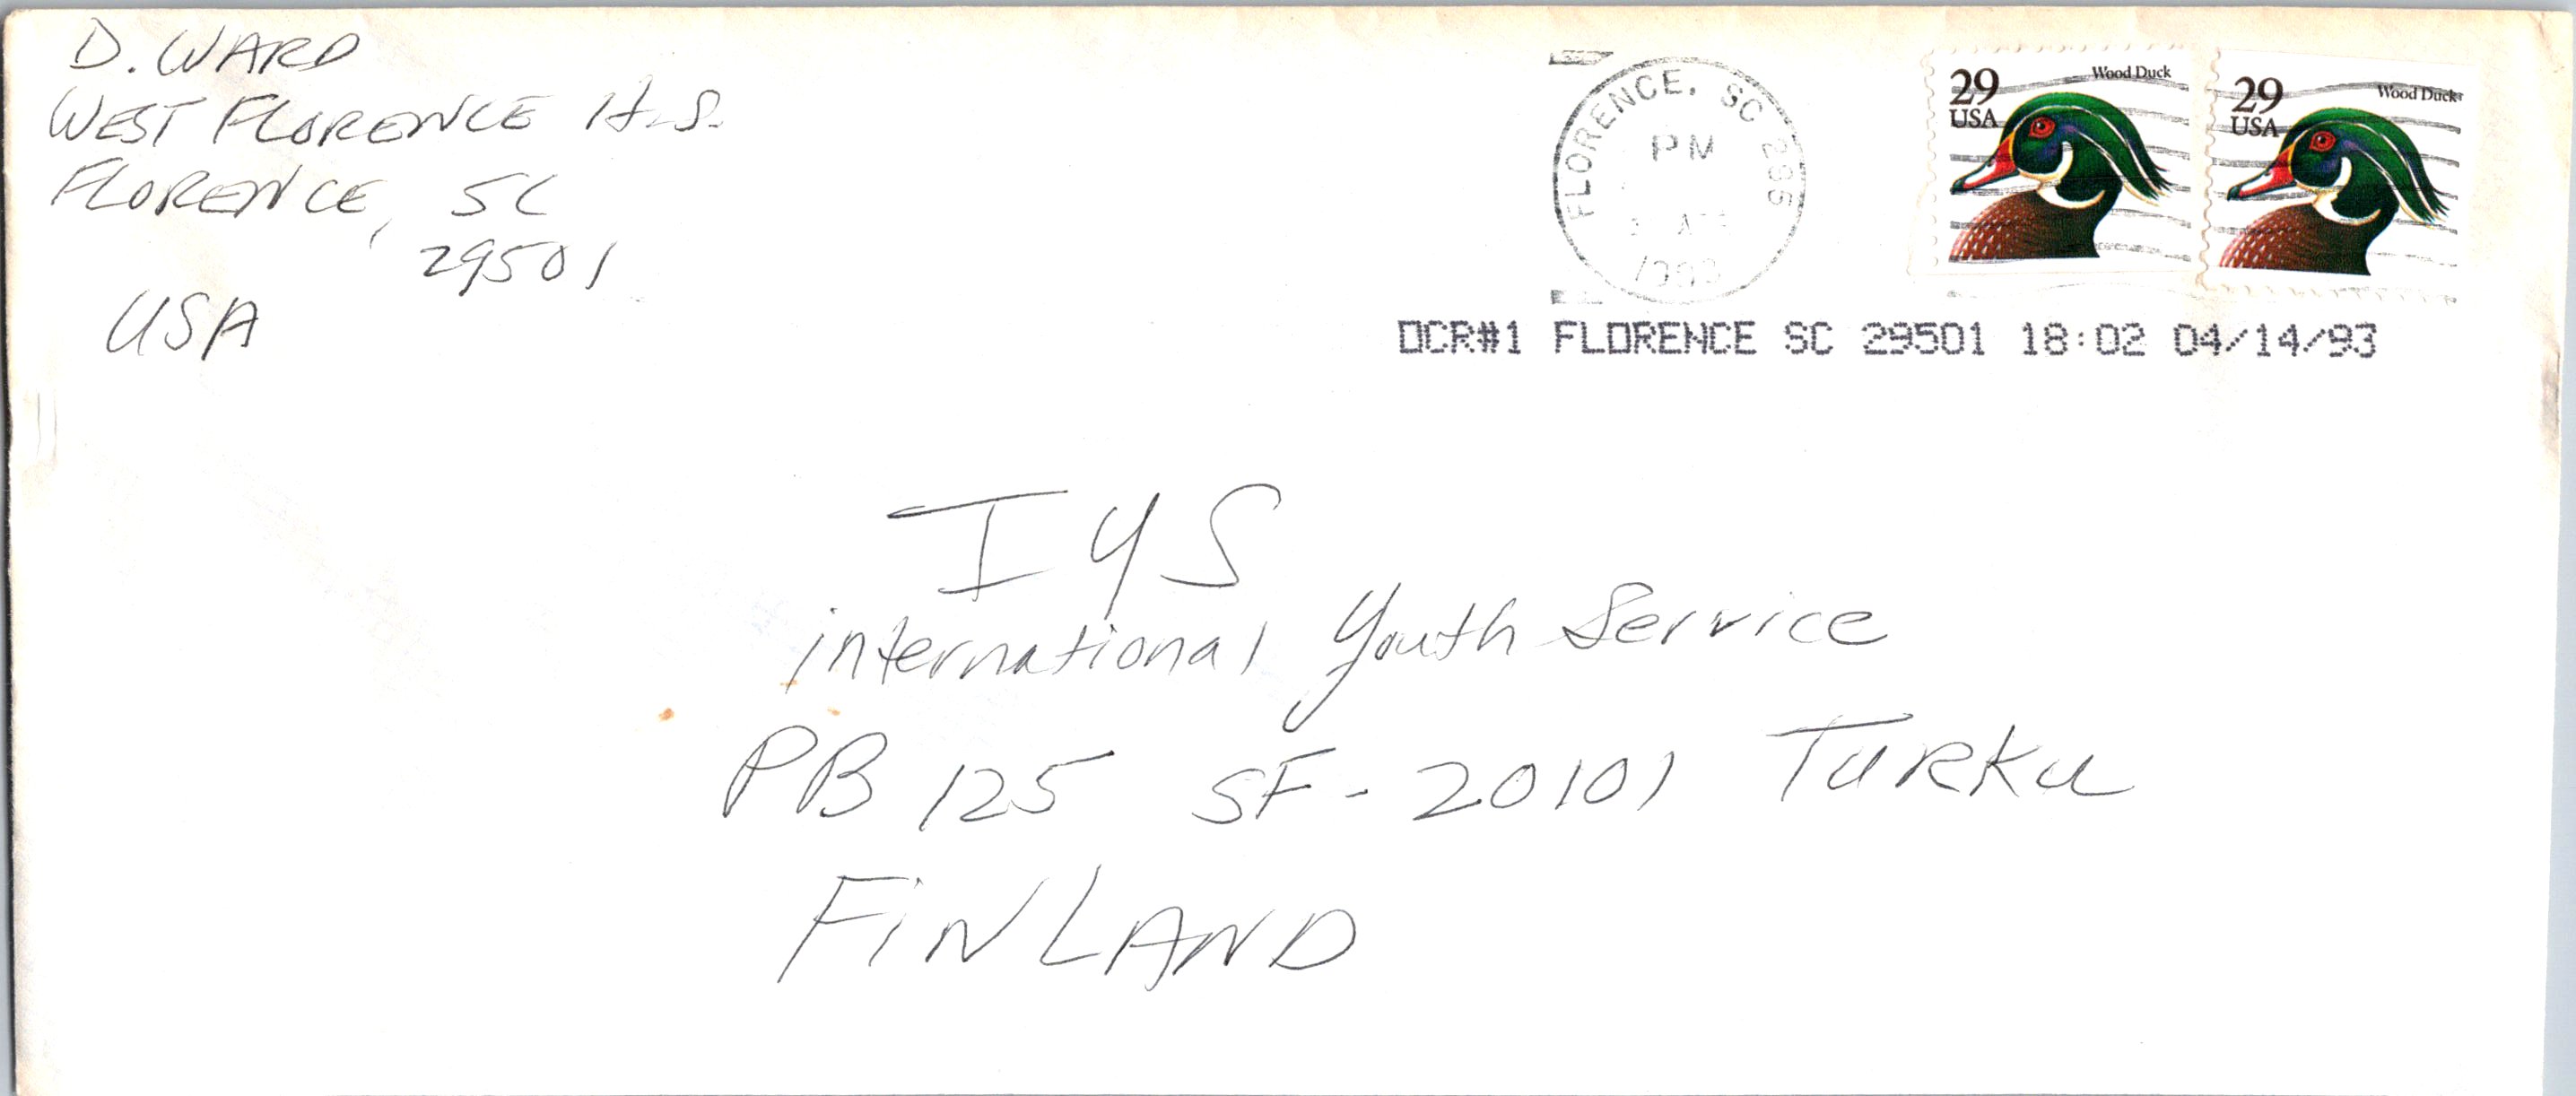 D. WARD
WEST FLORENCE H.S.
FLORENCE, SC
29501
USA
FLORENCE, SC 295
PM
1993
29
USA
Wood Duck
29
USA
Wood Duck
OCR#1 FLORENCE SC 29501 18:02 04/14/93
IYS
international Youth Service
PB 125 SF-20101 TURKU
FINLAND